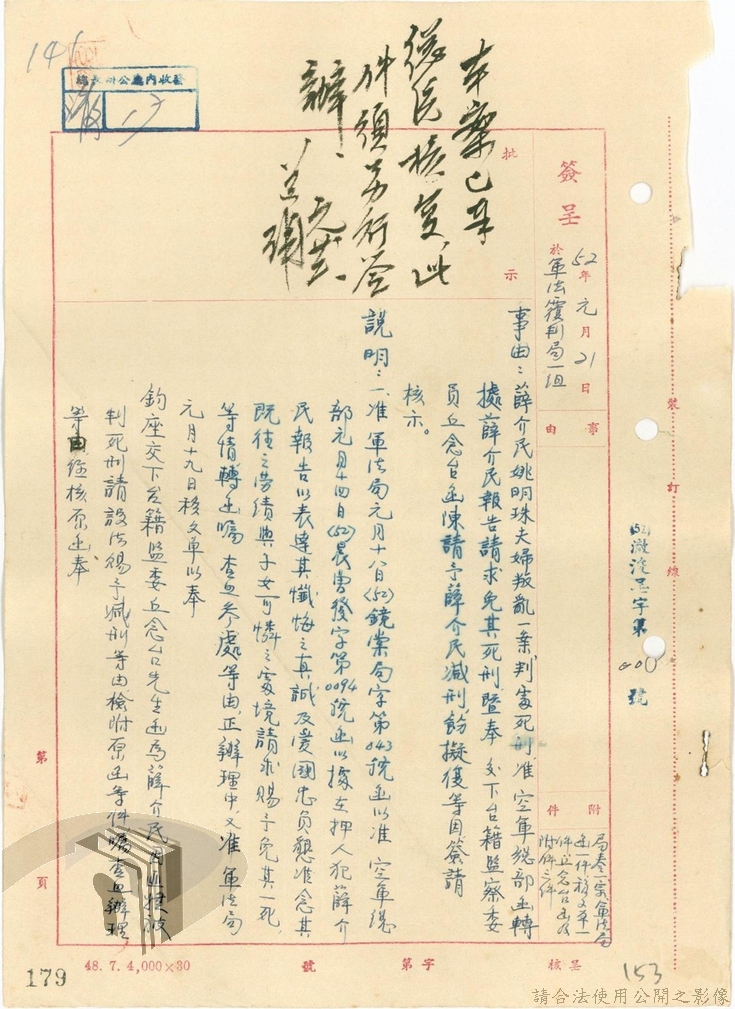 簽呈
52年元月21日
於軍法覆判局一組
批示
本案已奉
核復,此
件須另行簽
辦、
事由
附件
事由：薛介民姚明珠夫婦叛亂一案,判處死刑准空軍總部函轉
處薛介民報告請求免其死刑暨奉交下台籍監察委
員丘念台函陳請予薛介民減刑飭擬復等因簽請
核示。
說明：一、准軍法局元月十八日(52)鏡棠局字第043號函以准空軍總
部元月十四日(52)晨曹發字第0094號函以據在押人犯薛介
民報告以表達其懺悔之真誠及愛國忠貞懇准念其
既往之勞績與子女可憐之處境請求賜予免其一死,
等情轉函囑查照參處等由,正辦理中,又准軍法局
元月十九日移文單以奉
鈞座交下台籍監委丘念台先生函為薛介民因匪諜被
判死刑請設法賜予減刑等由檢附原函等件囑查照辦理
等由經核原函奉
裝訂線
號
第
頁
呈核
字第
號
48. 7. 4,000×30
179
153
141
請合法使用公開之影像